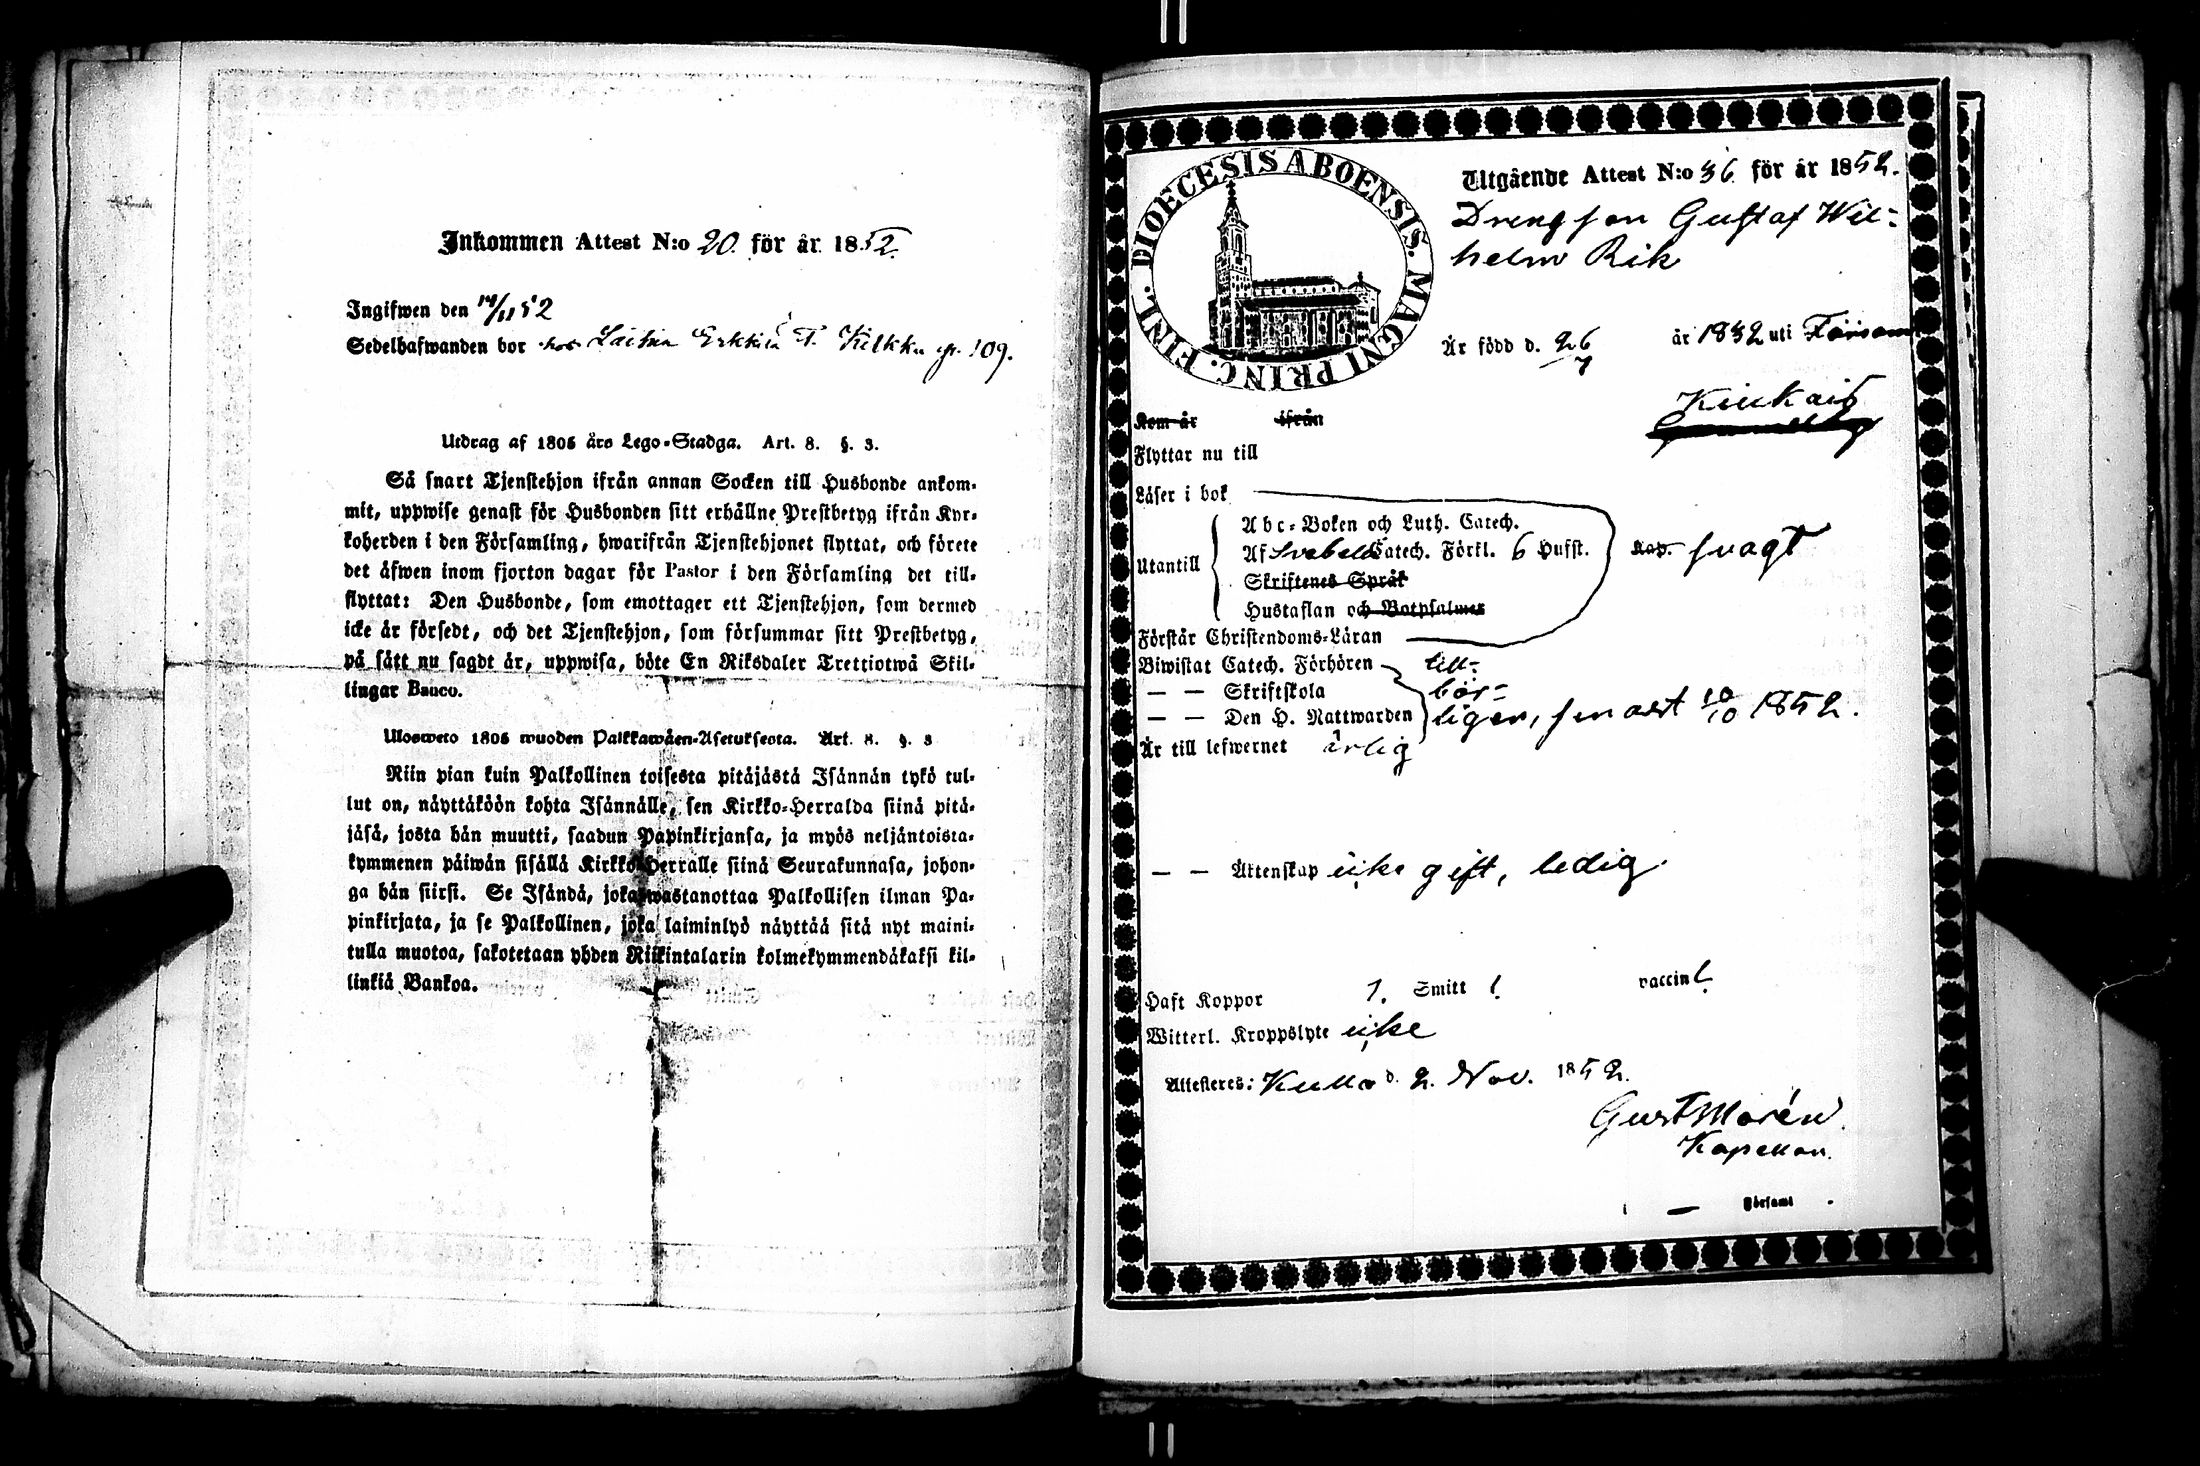 Inkommen Attest N:o 20. för år 1852.
Ingifwen den 14/11 52
Sedelhafwanden bor hos Laitia Erkkilä T. Kilkku p. 109.
Utdrag af 1805 års Lego-Stadga. Art. 8. §. 3.
Så snart Tjenstehjon ifrån annan Socken till Husbonde ankom-
mit, uppwise genast för Husbonden sitt erhållne Prestbetyg ifrån Kyr-
koherden i den Församling, hwarifrån Tjenstehjonet flyttat, och förete
det äfwen inom fjorton dagar för Pastor i den Församling det till-
flyttat: Den Husbonde, som emottager ett Tjenstehjon, som dermed
icke är försedt, och det Tjenstehjon, som försummar sitt Prestbetyg,
på sätt nu sagdt är, uppwisa, böte En Riksdaler Trettiotwå Skil-
lingar Banco.
Ulosweto 1805 wuoden Palkkawäen-Asetuksesta. Art. 8. §. 3
Niin pian kuin Palkollinen toisesta pitäjästä Isännän tykö tul-
lut on, näyttäköön kohta Isännälle, sen Kirkko-Herralda siinä pitä-
jäsä, josta hän muutti, saadun Papinkirjansa, ja myös neljäntoista-
kymmenen päiwän sisällä Kirkko-Herralle siinä Seurakunnasa, johon-
ga hän siirsi. Se Isändä, joka wastanottaa Palkollisen ilman Pa-
pinkirjata, ja se Palkollinen, joka laiminlyö näyttää sitä nyt maini-
tulla muotoa, sakotetaan yhden Riikintalarin kolmekymmendäkaksi kil-
linkiä Bankoa.
DIOECESIS ABOENSIS. MAGNI PRINC. FINL.
Utgående Attest N:o 36 för år 1852.
Drengson Gustaf Wil-
helm Rik
Är född d. 26/7 år 1832 uti
Kom år ifrån
Kiukais
Flyttar nu till
Läser i bok
Utantill
Abc-Boken och Luth. Catech.
Af Svebelii Catech. Förkl. 6 Hufst. Kap. svagt
Skriftenes Språk
Hustaflan och Botpsalmer
Förstår Christendoms-Läran
Biwistat Catech. Förhören till-
— — Skriftskola bör-
— — Den H. Nattwarden ligen, senast 10/10 1852.
Är till lefwernet ärlig
— — Äktenskap icke gift, ledig.
Haft Koppor 1. Smitt 1. vaccin 1.
Witterl. Kroppslyte icke
Attesteres: Kullo d. 2. Nov. 1852.
Gust Morén
Kapellan.
— Församl